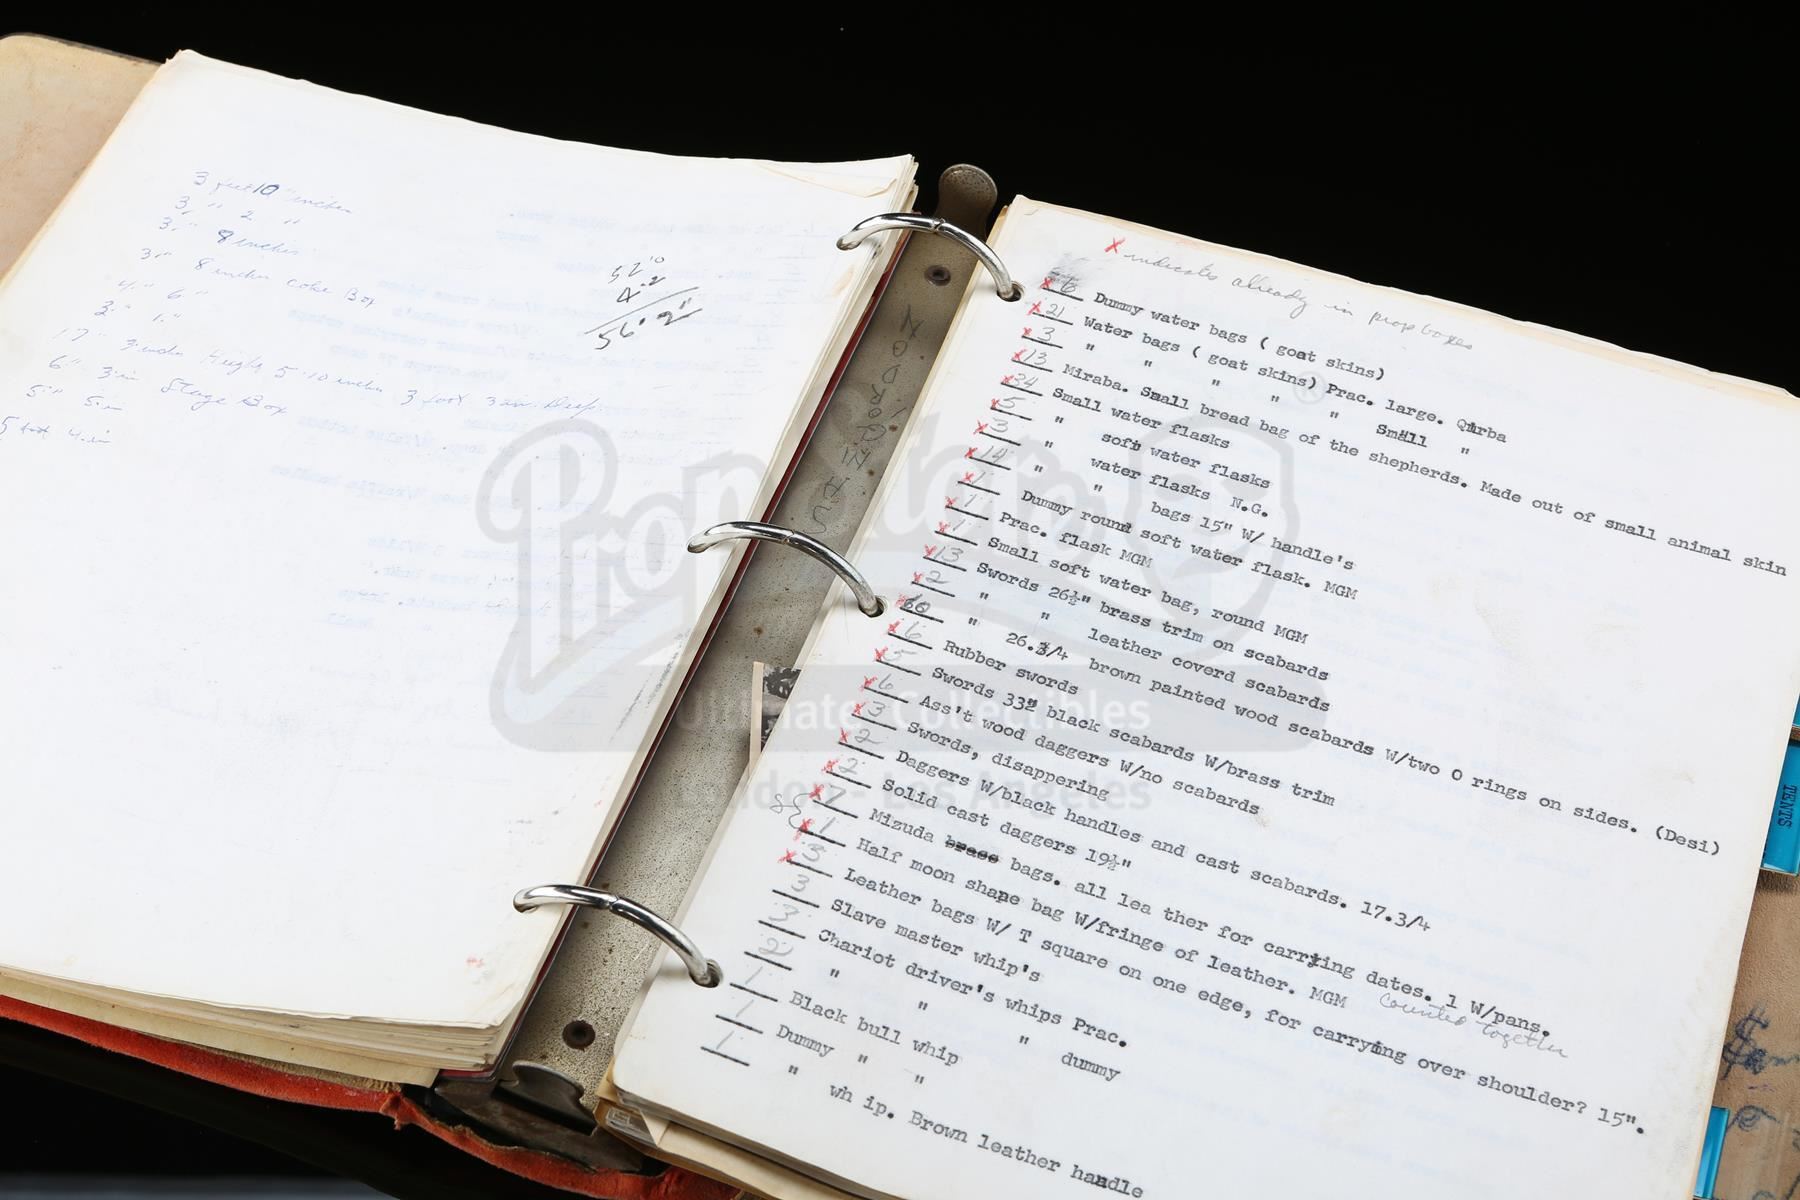 3 feet 10 " inches
3 " 2 "
3 " 8 inches
3 " 8 inches coke Box
4 " 6 "
3 " 1 "
17 " 3 inches Height 5 - 10 inches 3 foot 3 in. Deep.
6 " 3 in Stage Box
5 " 5 in
5 foot 4 in
52'0
4.2
56'2"
JOHN
x indicates already in prop boxes
x 6 Dummy water bags ( goat skins)
x 21 Water bags ( goat skins) Prac. large. Qirba
x 3 " " " " " Small "
x 13 Miraba. Small bread bag of the shepherds. Made out of small animal skin
x 34 Small water flasks
x 5 " soft water flasks
x 3 " water flasks N.G.
x 14 " " bags 15" W/ handle's
x 1 Dummy round soft water flask. MGM
x 1 Prac. flask MGM
x 1 Small soft water bag, round MGM
x 13 Swords 26½" brass trim on scabards
x 2 " " leather coverd scabards
x 60 " 26.3/4 brown painted wood scabards W/two O rings on sides. (Desi)
x 6 Rubber swords
x 5 Swords 33" black scabards W/brass trim
x 6 Ass't wood daggers W/no scabards
x 3 Swords, disappering
x 2 Daggers W/black handles and cast scabards. 17.3/4
x 2 Solid cast daggers 19½"
x Mizuda brass bags. all lea ther for carrying dates. 1 W/pans.
x 1 Half moon shape bag W/fringe of leather. MGM Counted together
x 3 Leather bags W/ T square on one edge, for carrying over shoulder? 15".
3 Slave master whip's
3 Chariot driver's whips Prac.
2 " " " dummy
1 Black bull whip
1 Dummy " "
1 " wh ip. Brown leather handle
TENTS
Propstore
®
Ultimate Collectibles
London - Los Angeles